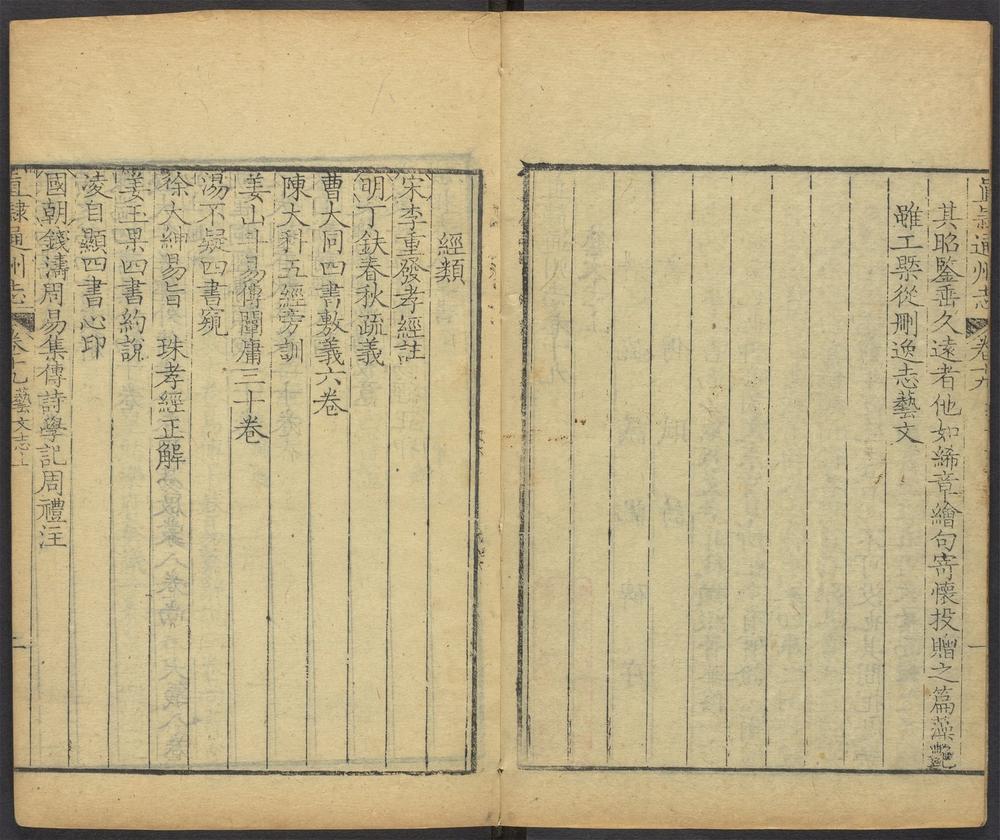 直隷通州志 卷十九 一
其昭鑒垂久遠者他如絺章繪句寄懷投贈之篇藻艷
雖工槩從刪逸志藝文
經類
宋李重發孝經註
明丁鈇春秋疏義
曹大同四書敷義六卷
陳大科五經旁訓
姜山斗易傳闡庸三十卷
湯不疑四書窺
徐大紳易旨外珠孝經正解
姜玉果四書約說
凌自顯四書心印
國朝錢濤周易集傳詩學記周禮注
直隷通州志 卷十九 藝文志上 二